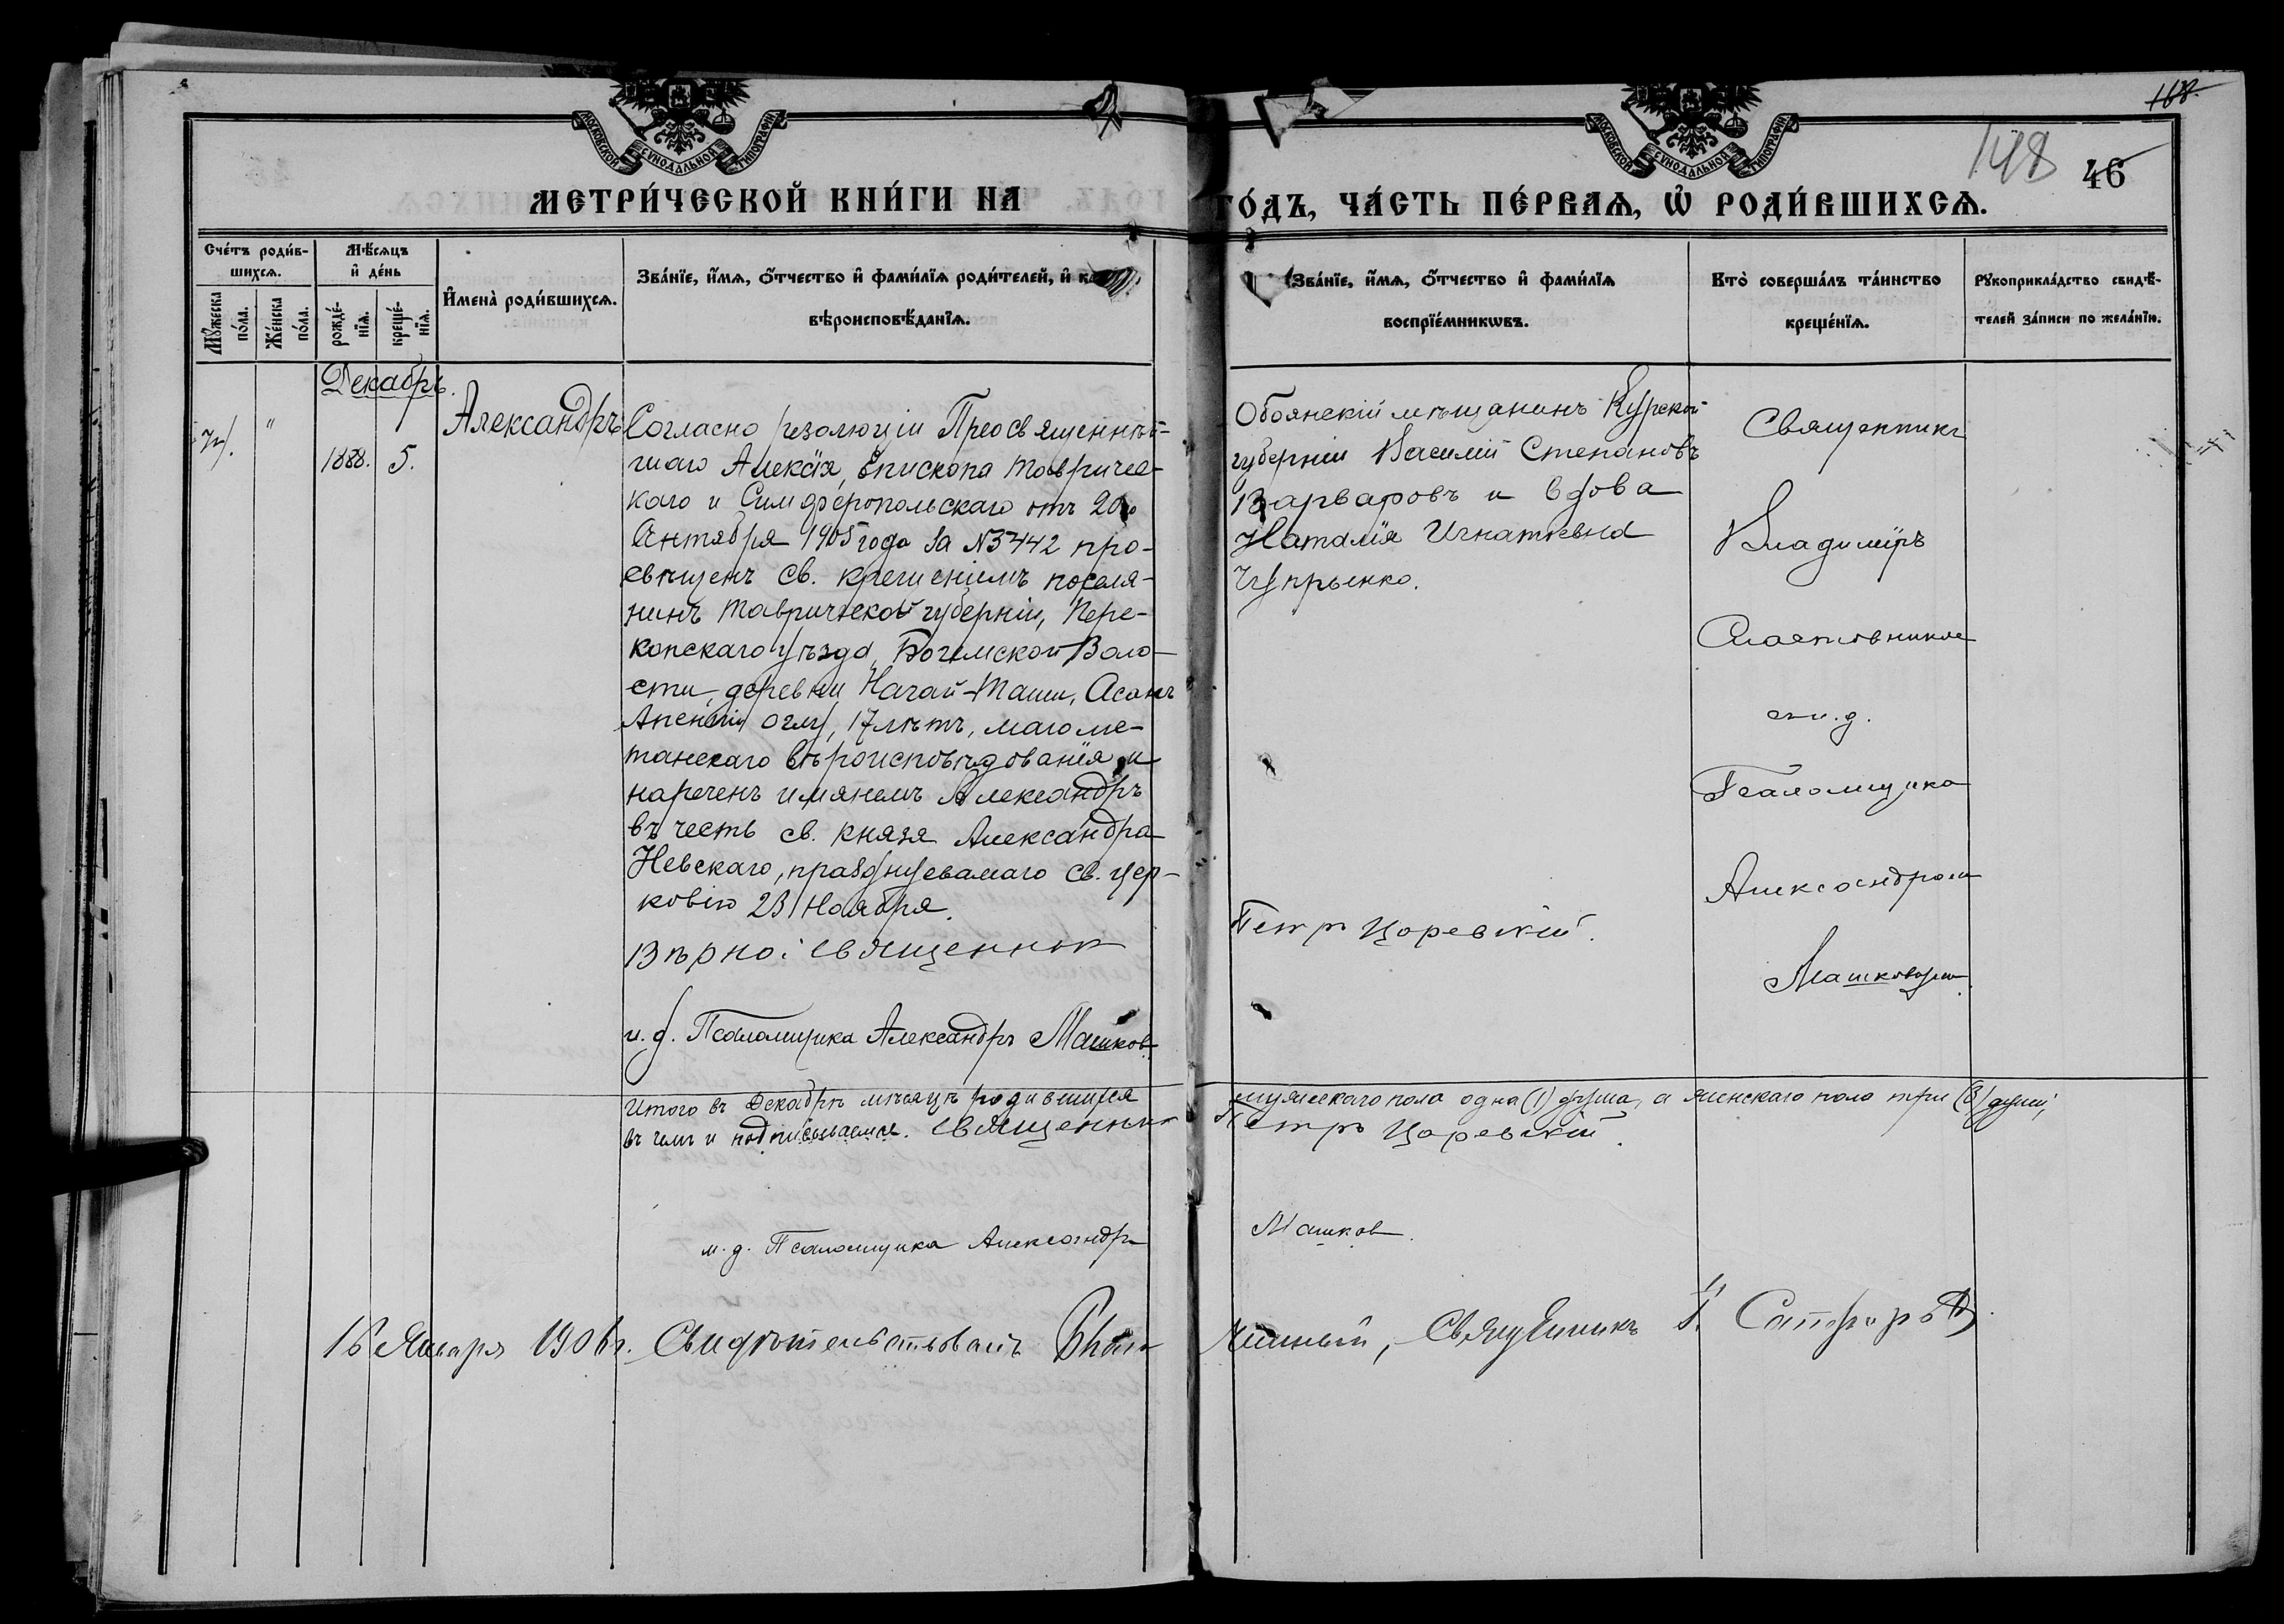 168.
148
46
МОСКОВСКОЙ СѴНОДАЛЬНОЙ ТИПОГРАФІИ
МОСКОВСКОЙ СѴНОДАЛЬНОЙ ТИПОГРАФІИ
МЕТРИ́ЧЕСКОЙ КНИ́ГИ НА
ГО́ДЪ, ЧА́СТЬ ПЕ́РВАѦ, Ѽ РОДИ́ВШИХСѦ.
Сче́тъ роди́в-
шихсѧ.
Мꙋжеска по́ла.
Же́нска по́ла.
Мѣ́сѧцъ
и҆ де́нь
рожде́-
нїѧ.
креще́-
нїѧ.
И҆мена̀ роди́вшихсѧ.
Зва́нїе, и҆́мѧ, ѻ҆́тчество и҆ фами́лїѧ роди́телей, и҆
вѣроисповѣ́данїѧ.
Зва́нїе, и҆́мѧ, ѻ҆́тчество и҆ фами́лїѧ
воспрїе́мникѡвъ.
Кто̀ соверша́лъ та́инство
креще́нїѧ.
Рꙋкоприкла́дство свидѣ́-
телей за́писи по жела́нїю.
Декабрь.
"
1888.
5.
Александръ
Согласно резолюціи Преосвященнѣй-
шаго Алексія, Епископа Тавричес-
каго и Симферопольскаго отъ 20го
Октября 1905 года за №5442 про-
свѣщенъ св. крещеніемъ поселя-
нинъ Таврической губерніи, Пере-
копскаго уѣзда, Богемской Воло-
сти, деревни Нагай-Таши, Асанъ
оглу, 17 лѣтъ, магоме-
танскаго вѣроисповѣдованія и
нареченъ имянемъ Александръ
въ честь св. князя Александра
Невскаго, празднуемаго св. цер-
ковію 23 Ноября.
Вѣрно: Священник
и. д. Псаломщика Александръ Машков
Обоянскій мѣщанинъ Курской
губерніи Василій Степановъ
Варваровъ и вдова
Наталія Игнатьевна
Чупрынко.
Петръ Царевскій.
Священникъ
Владиміръ
и. д.
Псаломщика
Александромъ
Машковымъ
Итого въ Декабрѣ мѣсяцѣ родившихся
мужескаго пола одна (1) душа, а женскаго пола три (3) души,
въ чемъ и подписываемся. Священникъ
Петръ Царевскій.
и. д. Псаломщика Александръ
Машков.
16 Января 1906 г. Свидѣтельствовалъ Благо-
чинный, Священникъ